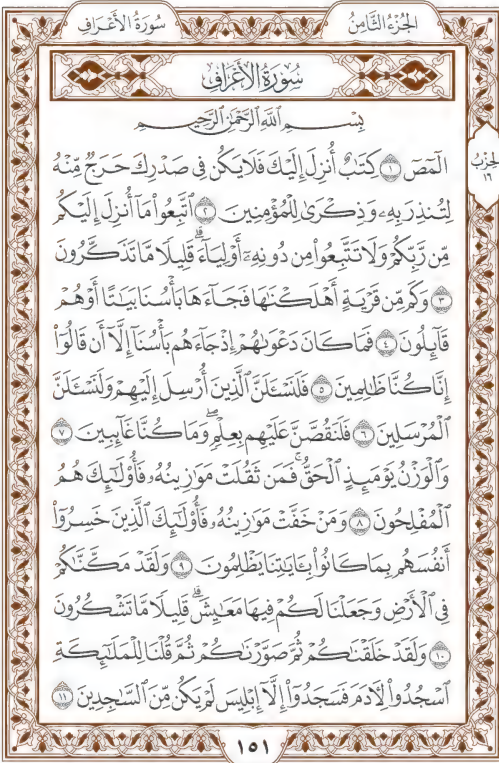 سُورَةُ الأَعْرَافِ
الجُزْءُ الثَّامِنُ
سُورَةُ الأَعْرَافِ
بِسْمِ ٱللَّهِ ٱلرَّحْمَٰنِ ٱلرَّحِيمِ
الحِزْبُ
١٦
الٓمٓصٓ ١ كِتَٰبٌ أُنزِلَ إِلَيْكَ فَلَا يَكُن فِى صَدْرِكَ حَرَجٌ مِّنْهُ
لِتُنذِرَ بِهِۦ وَذِكْرَىٰ لِلْمُؤْمِنِينَ ٢ ٱتَّبِعُوا۟ مَآ أُنزِلَ إِلَيْكُم
مِّن رَّبِّكُمْ وَلَا تَتَّبِعُوا۟ مِن دُونِهِۦٓ أَوْلِيَآءَ ۗ قَلِيلًا مَّا تَذَكَّرُونَ
٣ وَكَم مِّن قَرْيَةٍ أَهْلَكْنَٰهَا فَجَآءَهَا بَأْسُنَا بَيَٰتًا أَوْ هُمْ
قَآئِلُونَ ٤ فَمَا كَانَ دَعْوَىٰهُمْ إِذْ جَآءَهُم بَأْسُنَآ إِلَّآ أَن قَالُوٓا۟
إِنَّا كُنَّا ظَٰلِمِينَ ٥ فَلَنَسْـَٔلَنَّ ٱلَّذِينَ أُرْسِلَ إِلَيْهِمْ وَلَنَسْـَٔلَنَّ
ٱلْمُرْسَلِينَ ٦ فَلَنَقُصَّنَّ عَلَيْهِم بِعِلْمٍ ۖ وَمَا كُنَّا غَآئِبِينَ ٧
وَٱلْوَزْنُ يَوْمَئِذٍ ٱلْحَقُّ ۚ فَمَن ثَقُلَتْ مَوَٰزِينُهُۥ فَأُو۟لَٰٓئِكَ هُمُ
ٱلْمُفْلِحُونَ ٨ وَمَنْ خَفَّتْ مَوَٰزِينُهُۥ فَأُو۟لَٰٓئِكَ ٱلَّذِينَ خَسِرُوٓا۟
أَنفُسَهُم بِمَا كَانُوا۟ بِـَٔايَٰتِنَا يَظْلِمُونَ ٩ وَلَقَدْ مَكَّنَّٰكُمْ
فِى ٱلْأَرْضِ وَجَعَلْنَا لَكُمْ فِيهَا مَعَٰيِشَ ۗ قَلِيلًا مَّا تَشْكُرُونَ
١٠ وَلَقَدْ خَلَقْنَٰكُمْ ثُمَّ صَوَّرْنَٰكُمْ ثُمَّ قُلْنَا لِلْمَلَٰٓئِكَةِ
ٱسْجُدُوا۟ لِـَٔادَمَ فَسَجَدُوٓا۟ إِلَّآ إِبْلِيسَ لَمْ يَكُن مِّنَ ٱلسَّٰجِدِينَ ١١
١٥١